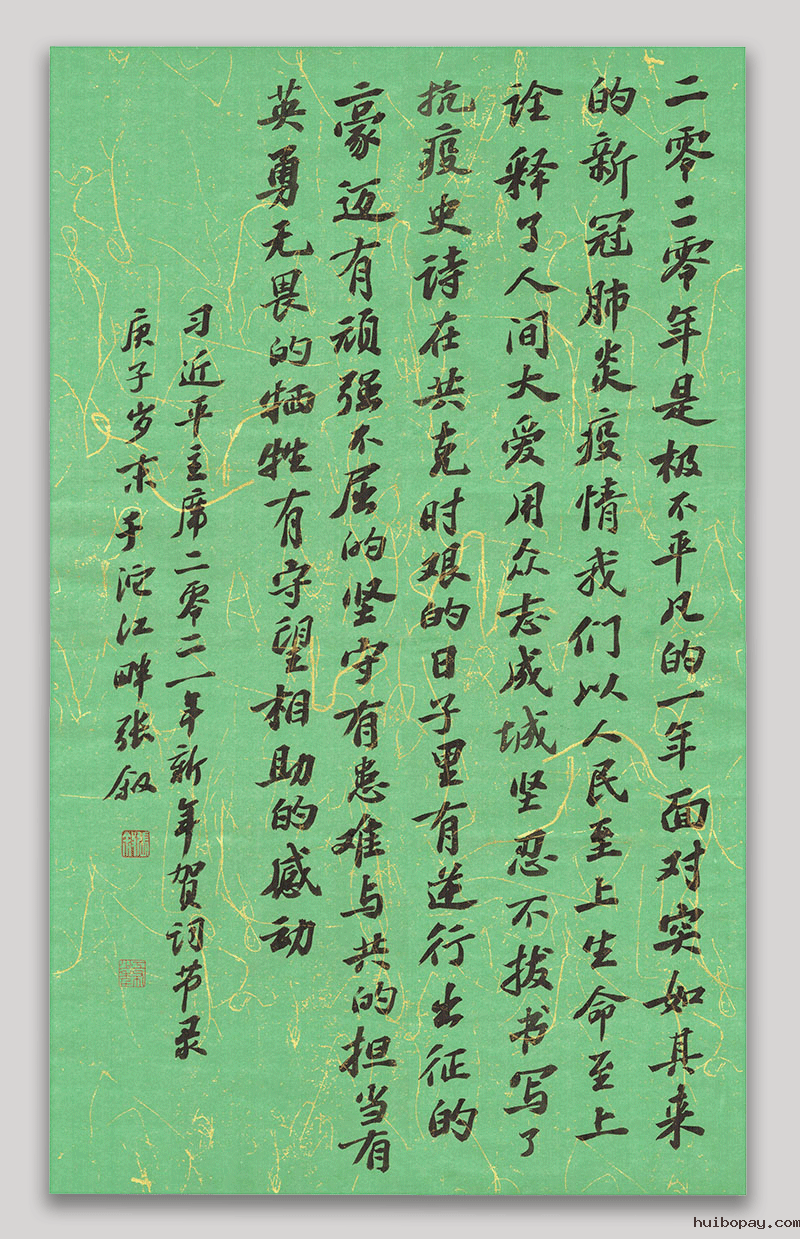 二零二零年是极不平凡的一年面对突如其来
的新冠肺炎疫情我们以人民至上生命至上
诠释了人间大爱用众志成城坚忍不拔书写了
抗疫史诗在共克时艰的日子里有逆行出征的
豪迈有顽强不屈的坚守有患难与共的担当有
英勇无畏的牺牲有守望相助的感动
习近平主席二零二一年新年贺词节录
庚子岁末于沱江畔张叙
huibopay.com